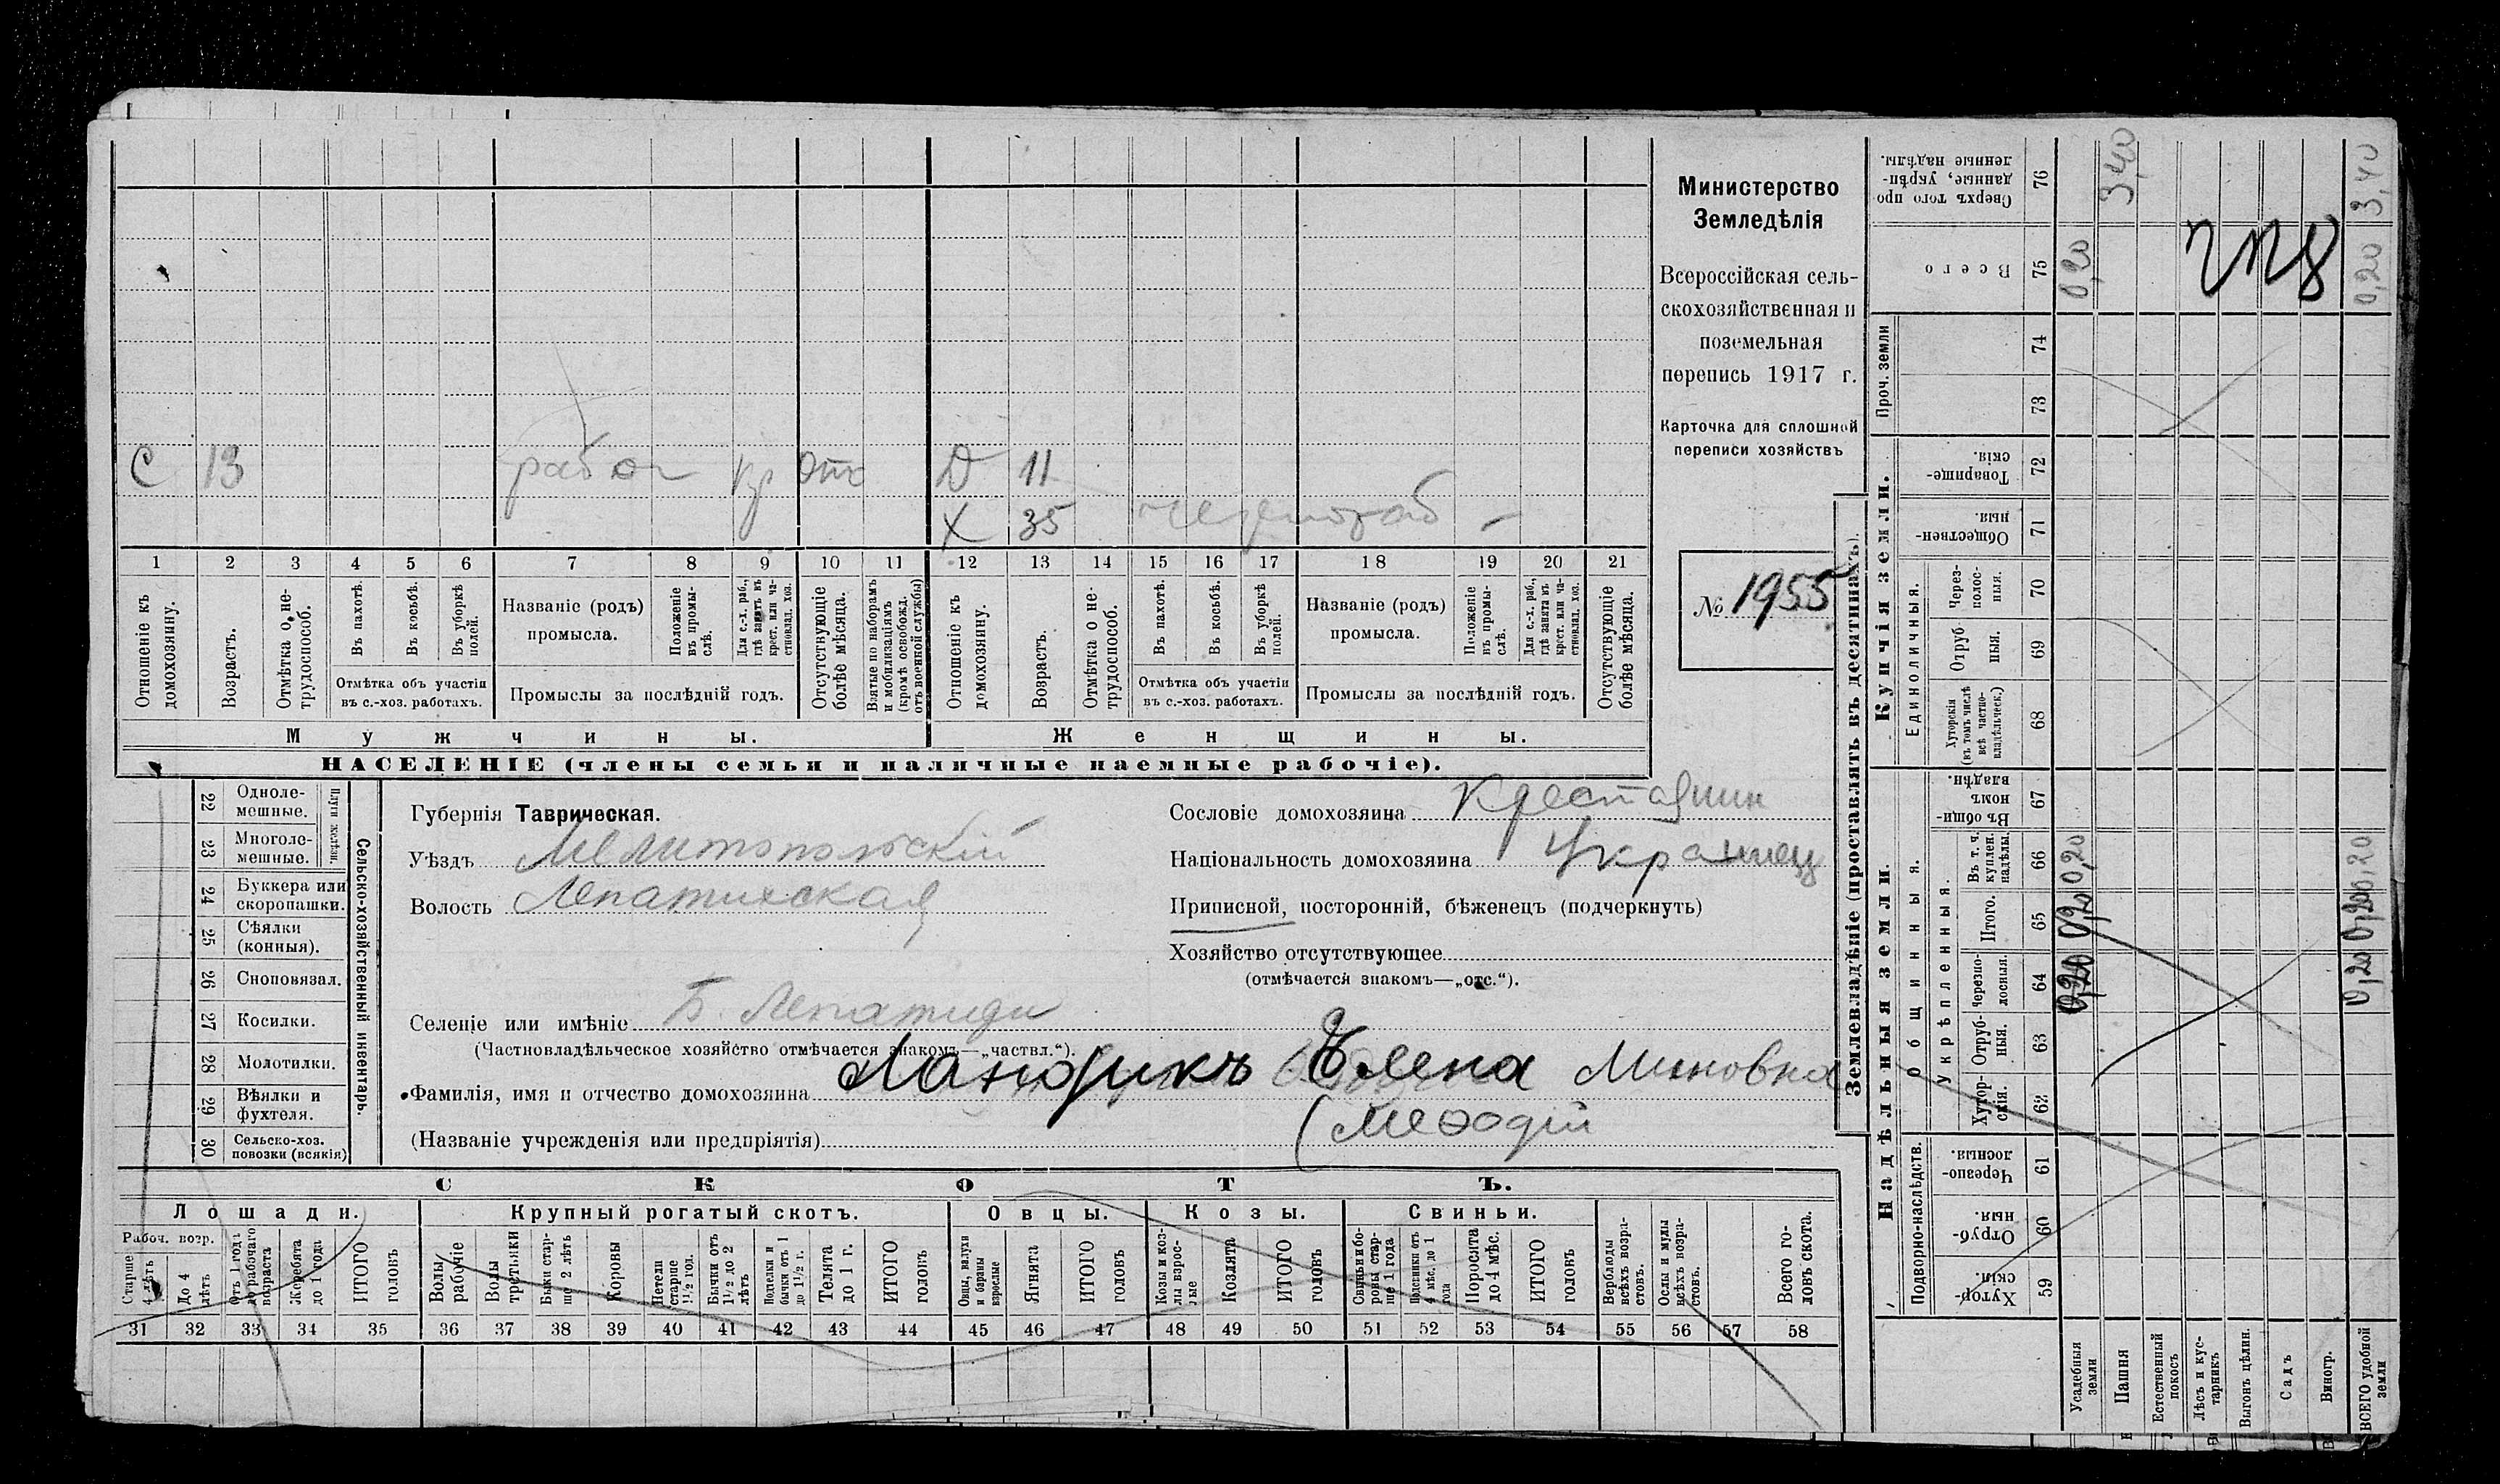 С 13 рабоч кр отс Д 11
Х 35
1 2 3 4 5 6 7 8 9 10 11 12 13 14 15 16 17 18 19 20 21
Отношеніе къ домохозяину.
Возрастъ.
Отмѣтка о не-трудоспособ.
Въ пахотѣ.
Въ косьбѣ.
Въ уборкѣ полей.
Отмѣтка объ участіи
въ с.-хоз. работахъ.
Названіе (родъ)
промысла.
Положеніе въ промы-слѣ.
Для с.-х. раб., гдѣ занятъ въ крест. или ча-стновлад. хоз.
Промыслы за послѣдній годъ.
Отсутствующіе болѣе мѣсяца.
Взятые по наборамъ и мобилизаціямъ (кромѣ освобожд. отъ военной службы)
Отношеніе къ домохозяину.
Возрастъ.
Отмѣтка о не-трудоспособ.
Въ пахотѣ.
Въ косьбѣ.
Въ уборкѣ полей.
Отмѣтка объ участіи
въ с.-хоз. работахъ.
Названіе (родъ)
промысла.
Положеніе въ промы-слѣ.
Для с.-х. раб., гдѣ занята въ крест. или ча-стновлад. хоз.
Промыслы за послѣдній годъ.
Отсутствующіе болѣе мѣсяца.
Мужчины.
Женщины.
НАСЕЛЕНІЕ (члены семьи и наличные наемные рабочіе).
Министерство
Земледѣлія
Всероссійская сель-
скохозяйственная и
поземельная
перепись 1917 г.
Карточка для сплошной
переписи хозяйствъ
№ 1955
22 Одноле-мешные.
23 Многоле-мешные.
Плуги желѣзн.
24 Буккера или скоропашки.
25 Сѣялки (конныя).
26 Сноповязал.
27 Косилки.
28 Молотилки.
29 Вѣялки и фухтеля.
30 Сельско-хоз. повозки (всякія)
Сельско-хозяйственный инвентарь.
Губернія Таврическая.
Уѣздъ Мелитопольскій
Волость Лепатихская
Селеніе или имѣніе Б. Лепатихи
(Частновладѣльческое хозяйство отмѣчается знакомъ—„частвл.“).
Фамилія, имя и отчество домохозяина Ландикъ Елена Миновна
(Названіе учрежденія или предпріятія) (Меѳодій
Сословіе домохозяина Крестянин
Національность домохозяина Украинец
Приписной, посторонній, бѣженецъ (подчеркнуть)
Хозяйство отсутствующее
(отмѣчается знакомъ—„отс.“).
СКОТЪ.
Лошади.
Крупный рогатый скотъ.
Овцы.
Козы.
Свиньи.
Рабоч. возр.
Старше 4 лѣтъ
До 4 лѣтъ
Отъ 1 года до рабочаго возраста
Жеребята до 1 года
ИТОГО головъ
Волы рабочіе
Волы третьяки
Быки стар-ше 2 лѣтъ
Коровы
Нетели старше 1½ год.
Бычки отъ 1½ до 2 лѣтъ
Подтелки и бычки отъ 1 до 1½ г.
Телята до 1 г.
ИТОГО головъ
Овцы, валухи и бараны взрослые
Ягнята
ИТОГО головъ
Козы и коз-лы взрос-лые
Козлята
ИТОГО головъ
Свиньи и бо-ровы стар-ше 1 года
Подсвинки отъ 4 мѣс. до 1 года
Поросята до 4 мѣс.
ИТОГО головъ
Верблюды всѣхъ возра-стовъ.
Ослы и мулы всѣхъ возра-стовъ.
Всего го-ловъ скота.
31 32 33 34 35 36 37 38 39 40 41 42 43 44 45 46 47 48 49 50 51 52 53 54 55 56 57 58
Землевладѣніе (проставлять въ десятинахъ).
Надѣльныя земли.
Купчія земли.
Проч. земли
Подворно-наслѣдств.
Общинныя.
Укрѣпленныя.
Единоличныя.
59 Хутор-скія.
60 Отруб-ныя.
61 Черезпо-лосныя.
62 Хутор-скія.
63 Отруб-ныя.
64 Черезпо-лосныя. 0,20 0,20
65 Итого. 0,20 0,20
66 Въ т. ч. куплен. надѣлы. 0,20 0,20
67 Въ общи-номъ владѣн.
68 Хуторскія (въ томъ числѣ всѣ частно-владѣльческ.)
69 Отруб ныя.
70 Через-полос-ныя.
71 Обществен-ныя.
72 Товарище-скія.
73
74
75 Всего 0,20 0,20
76 Сверхъ того про данные, укрѣп-ленные надѣлы. 3,40 3,40
Усадебныя земли
Пашня
Естественный покосъ
Лѣсъ и кус-тарникъ
Выгонъ цѣлин.
Садъ
Виногр.
ВСЕГО удобной земли